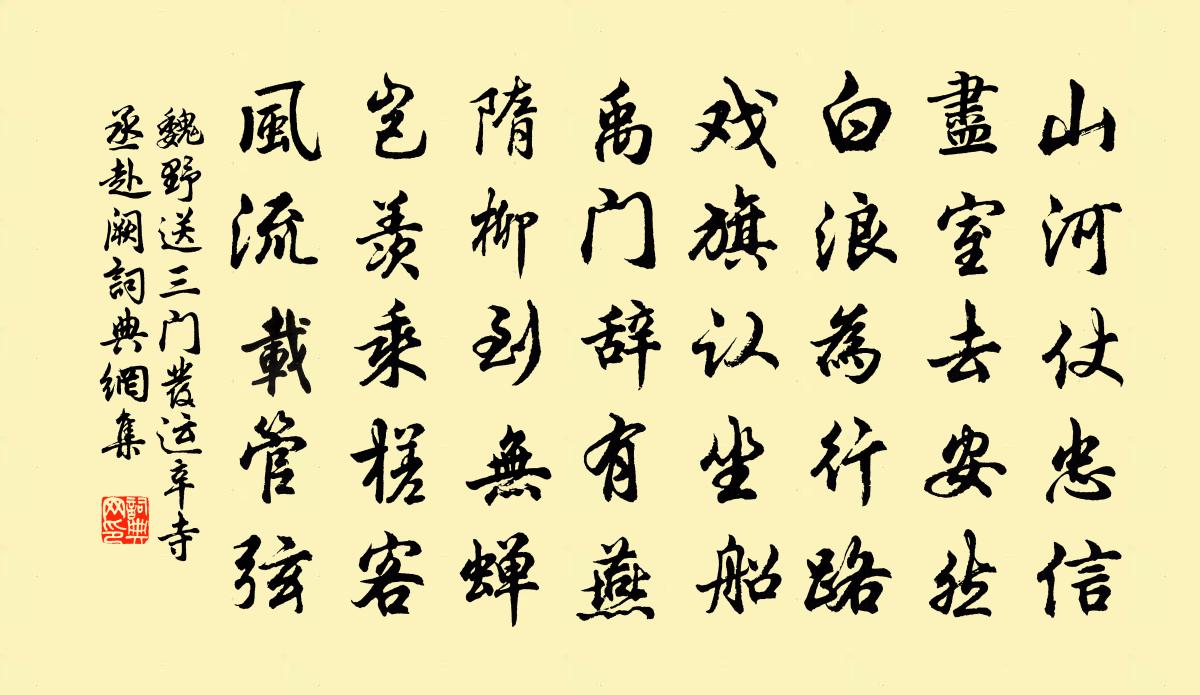 山河仗忠信
盡室去安然
白浪為行路
戏旗认坐船
禹门辞有燕
隋柳到無蝉
岂羡乘槎客
風流載管弦
魏野送三门發运辛寺
丞赴阙詞典網集
詞典
网印